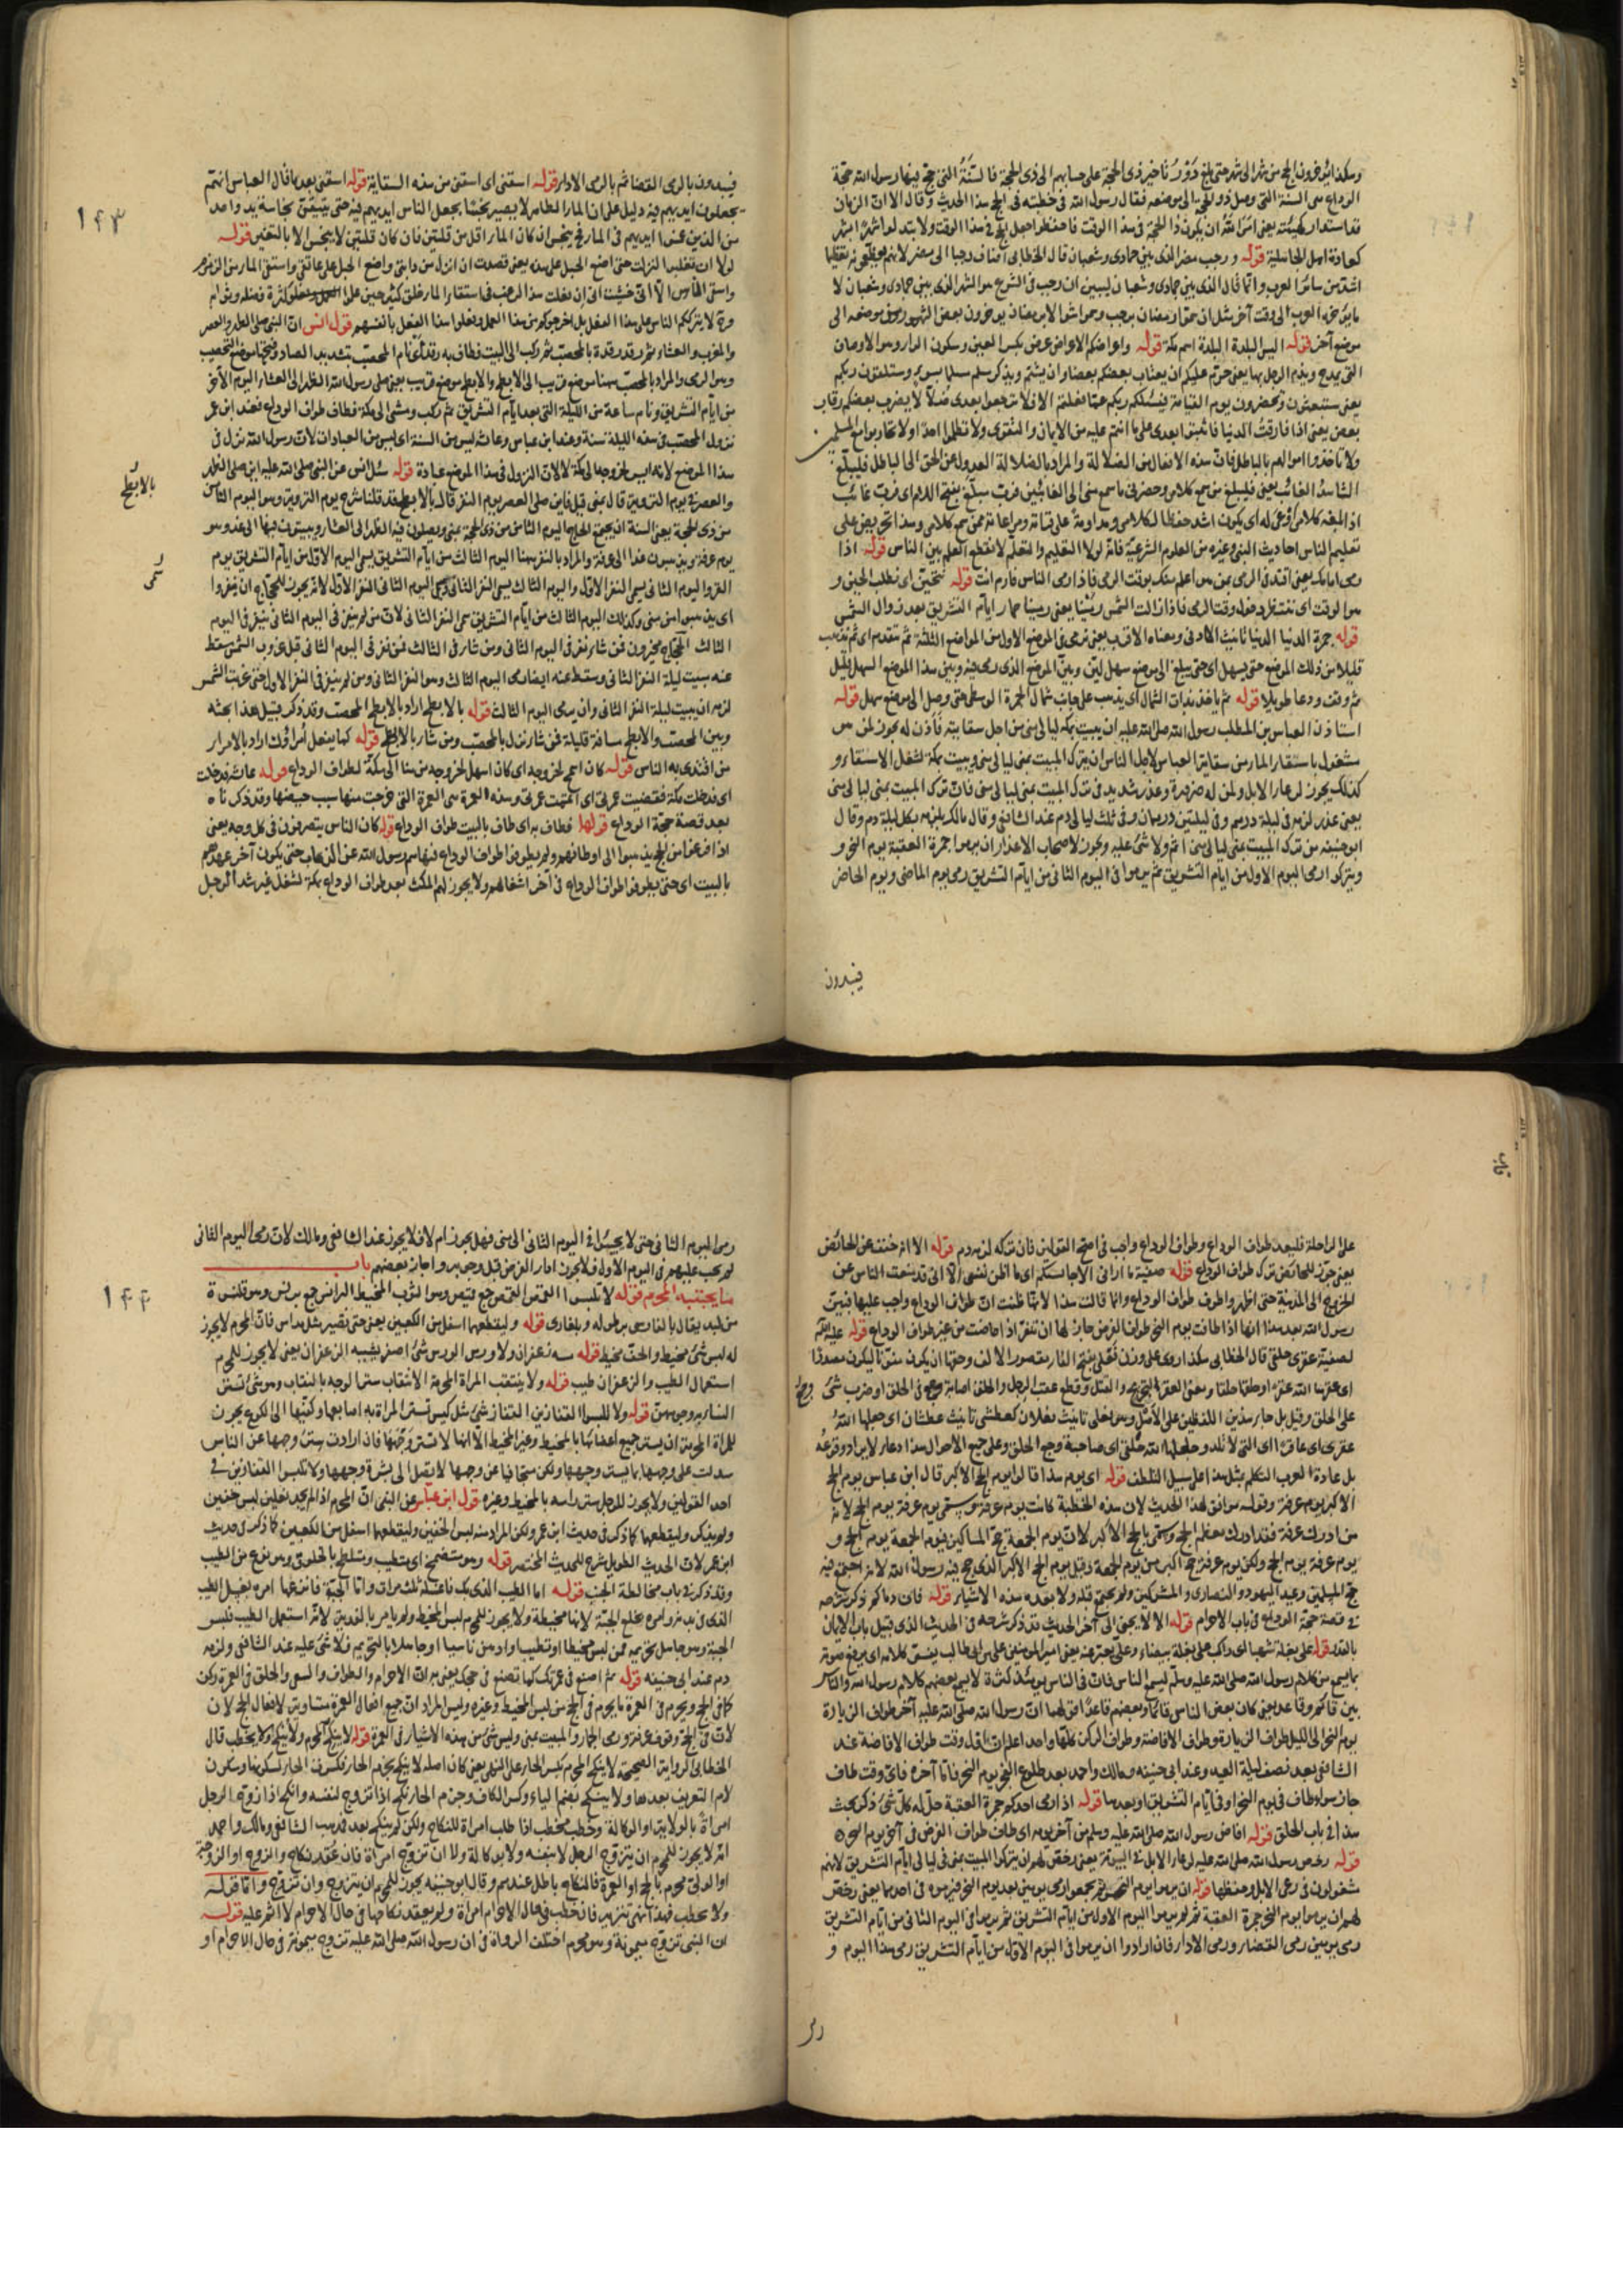 وهكذا يؤخرون الحج من شهر الى شهر حتى بلغ دور تأخير ذى الحجة على حسابهم الى ذى الحجة فالسنة التى حج فيها رسول الله حجة
الوداع هى السنة التى وصل ذو الحجة الى موضعه فقال رسول الله فى خطبته فى الحج هذا الحديث وقال الا ان الزمان
قد استدار كهيئته يعنى امر الله ان يكون ذا الحجة فى هذا الوقت فاحفظوا واجعل الحج فى هذا الوقت ولا تبدلوا شهرا بشهر
كعادة اهل الجاهلية قوله ورجب مضر الذى بين جمادى وشعبان قال الخطابى اضاف رجبا الى مضر لانهم
اشد من سائر العرب وانما قال الذى بين جمادى وشعبان ليبين ان رجب فى الشرع هو الشهر الذى بين جمادى وشعبان لا
موضع آخر قوله اليس البلدة البلدة اسم مكة قوله واعراضكم الاعراض عرض بكسر العين وسكون الراء وهو الاوصاف
التى يمدح ويذم الرجل بها يعنى حرم عليكم ان يغتاب بعضكم بعضا وان يشتم ويذكر مسلم مسلما بسوء وستلقون ربكم
يعنى ستبعثون وتحضرون يوم القيامة فيسئلكم ربكم عما فعلتم الا فلا ترجعوا بعدى ضلالا لا يضرب بعضكم رقاب
بعض يعنى اذا فارقت الدنيا فاثبتوا بعدى على ما انتم عليه من الايمان والتقوى ولا تظلموا احدا ولا تحاربوا مع المسلمين
ولا تأخذوا اموالهم بالباطل فان هذه الافعال من الضلالة والمراد بالضلالة العدول عن الحق الى الباطل فليبلغ
الشاهد الغائب يعنى فليبلغ من سمع كلامى وحضر فى ما سمع منى الى الغائبين فرب مبلغ بفتح اللام اى فرب غائب
اذا ابلغه كلامى اوعى له اى يكون اشد حفظا لكلامى ومداومة على ثباته ومراعاته ممن سمع كلامى وهذا تحريض على
تعليم الناس احاديث النبى وغيره من العلوم الشرعية فانه لولا التعليم والتعلم لانقطع العلم بين الناس قوله اذا
رمى امامك يعنى اقتد فى الرمى بمن هو اعلم منك بوقت الرمى فاذا رمى الناس فارم انت قوله نتحين اى نطلب الحين و
هو الوقت اى ننتظر دخول وقت الرمى فاذا زالت الشمس رمينا يعنى رمينا جمار ايام التشريق بعد زوال الشمس
قوله جمرة الدنيا الدنيا تأنيث الادنى ومعناه الاقرب يعنى نرمى فى الموضع الاول من المواضع الثلثة ثم تتقدم اى ثم تذهب
قليلا من ذلك الموضع حتى يسهل اى حتى يبلغ الى موضع سهل لين وبين الموضع الذى رمى فيه وبين هذا الموضع السهل قليل
ثم وقف ودعا طويلا قوله ثم يأخذ بذات الشمال اى يذهب على جانب شمال الجمرة الوسطى حتى وصل الى موضع سهل قوله
استأذن العباس بن المطلب رسول الله صلى الله عليه ان يبيت بمكة ليالى منى من اجل سقايته فأذن له يجوز لمن هو
مشغول باستقاء الماء من سقاية العباس لاجل الناس ان يترك المبيت بمنى ليالى منى ويبيت بمكة لشغل الاستقاء و
كذلك يجوز لرعاء الابل ولمن له ضرورة وعذر شديد فى ترك المبيت بمنى ليالى منى فان ترك المبيت بمنى ليالى منى
بغير عذر لزمه فى ليلة درهم وفى ليلتين درهمان وفى ثلث ليالى دم عند الشافعى وقال مالك يلزمه بكل ليلة دم وقال
ابو حنيفة من ترك المبيت بمنى ليالى منى اثم ولا شئ عليه ويجوز لاصحاب الاعذار ان يرموا جمرة العقبة يوم النحر و
ويتركوا رمى اليوم الاول من ايام التشريق ثم يرموا فى اليوم الثانى من ايام التشريق رمى يوم الماضى ويوم الحاضر
فيبدون
١٤٣
فيبدون بالرمى القضاء ثم بالرمى الاداء قوله استقى اى استقى من هذه السقاية قوله استقى بعد ما قال العباس انهم
يجعلون ايديهم فيه دليل على ان الماء الطاهر لا يصير نجسا بجعل الناس ايديهم فيه حتى يتيقن نجاسة يد واحد
من الذين غمسوا ايديهم فى الماء فح ينجس ان كان الماء اقل من قلتين فان كان قلتين لا ينجس الا بالتغير قوله
لولا ان تغلبوا لنزلت حتى اضع الحبل على هذه يعنى قصدت ان انزل من دابتى واضع الحبل على عاتقى واستقى الماء من الزمزم
مرة لا يترككم الناس على هذا الفعل بل اخرجوكم من هذا العمل وفعلوا هذا الفعل بانفسهم قول انس ان النبى صلى الظهر والعصر
والمغرب والعشاء ثم رقد رقدة بالمحصب ثم ركب الى البيت فطاف به رقد اى نام المحصب بتشديد الصاد وفتحها موضع التحصيب
وهو الرمى والمراد بالمحصب ههنا موضع قريب الى الابطح والابطح موضع قريب يعنى صلى رسول الله الظهر الى العشاء اليوم الآخر
من ايام التشريق ونام ساعة من الليلة التى بعد ايام التشريق ثم ركب ومشى الى مكة فطاف طواف الوداع فعند ابن عمر
نزول المحصب فى هذه الليلة سنة وعند ابن عباس وعائشة ليس من السنة اى ليس من العبادات لان رسول الله نزل فى
هذا الموضع لانه ايسر لخروجه الى مكة لا لان النزول فى هذا الموضع عبادة قوله سئل انس عن النبى صلى الله عليه اين صلى الظهر
والعصر فى يوم التروية قال بمنى قيل فاين صلى العصر يوم النفر قال بالابطح قد قلنا شرح يوم التروية وهو اليوم الثامن
من ذى الحجة يعنى السنة ان يجمع الحاج اليوم الثامن من ذى الحجة بمنى ويصلون فيه الظهر الى العشاء ويبيتون فيها الى غد وهو
يوم عرفة ويذهبون غدا الى عرفة والمراد بالنفر ههنا اليوم الثالث من ايام التشريق يسمى اليوم الاول من ايام التشريق يوم
القر واليوم الثانى يسمى النفر الاول واليوم الثالث يسمى النفر الثانى
بالابطح
سمى
اى يذهبوا من منى وكذلك اليوم الثالث من ايام التشريق سمى النفر الثانى لان من لم ينفر فى اليوم الثانى ينفر فى اليوم
الثالث الحجاج مخيرون فمن شاء نفر فى اليوم الثانى ومن شاء فى الثالث فمن نفر فى اليوم الثانى قبل غروب الشمس سقط
عنه مبيت ليلة النفر الثانى وسقط عنه ايضا رمى اليوم الثالث وهو النفر الثانى ومن لم ينفر فى النفر الاول حتى غربت الشمس
لزمه ان يبيت ليلة النفر الثانى وان يرمى اليوم الثالث قوله بالابطح اراد بالابطح المحصب وقد ذكر قبيل هذا بحثه
وبين المحصب والابطح مسافة قليلة فمن شاء نزل بالمحصب ومن شاء بالابطح قوله كما يفعل امراؤك اراد بالامراء
من اقتدى به الناس قوله كان اسمح لخروجه اى كان اسهل لخروجه من منا الى مكة لطواف الوداع قوله عائشة فدخلت
اى فدخلت مكة فقضيت عمرتى اى اتممت عمرتى وهذه العمرة هى العمرة التى خرجت منها بسبب حيضها وقد ذكرناه
بعد قصة حجة الوداع قولها فطاف به اى طاف بالبيت طواف الوداع قوله كان الناس ينصرفون فى كل وجه يعنى
اذا فرغوا من الحج يذهبوا الى اوطانهم ولم يطوفوا طواف الوداع فنهاهم رسول الله عن الذهاب حتى يكون آخر عهدهم
بالبيت اى حتى يطوفوا طواف الوداع فى آخر اشغالهم ولا يجوز لهم المكث بعد طواف الوداع بمكة لشغل غير شد الرحل
على الراحلة فليعد طواف الوداع وطواف الوداع واجب فى اصح القولين فان تركه لزمه دم قوله الا انه خفف عن الحائض
يعنى جوز للحائض ترك طواف الوداع قوله صفية ما ارانى الا حابستكم اى ما اظن نفسى الا انى قد منعت الناس عن
الخروج الى المدينة حتى اطهر واطوف طواف الوداع وانما قالت هذا لانها ظنت ان طواف الوداع واجب عليها فبين
رسول الله بعد هذا انها اذا طافت يوم النحر طواف الفرض جاز لها ان تنفر اذا حاضت من غير طواف الوداع قوله عليه السلام
لصفية عقرى حلقى قال الخطابى هكذا روى على وزن فعلى بفتح الفاء مقصور الالف وحقها ان يكون منونا ليكون مصدرا
اى عقرها الله عقرا وحلقها حلقا ومعنى العقر التجريح والقتل وقطع عقب الرجل والحلق اصابة وجع فى الحلق او ضرب شئ
وجع
على الحلق وقيل بل جاء هذين اللفظين على الاصل وهو فعلى تأنيث فعلان كعطشى تأنيث عطشان اى جعلها الله
عقرى اى عاقرا اى التى لا تلد وجعلها الله حلقى اى صاحبة وجع الحلق وعلى جميع الاحوال هذا دعاء لا يراد وقوعه
بل عادة العرب التكلم بمثل هذا على سبيل التلطف قوله اى يوم هذا قالوا يوم الحج الاكبر قال ابن عباس يوم الحج
الاكبر يوم عرفة وقوله موافق لهذا الحديث لان هذه الخطبة كانت يوم عرفة وسمى يوم عرفة يوم الحج لانه
من ادرك عرفة فقد ادرك معظم الحج وسمى بالحج الاكبر لان يوم الجمعة حج المساكين فيوم الجمعة يوم الحج و
يوم عرفة يوم الحج ولكن يوم عرفة حج اكبر من يوم الجمعة وقيل يوم الحج الاكبر الذى حج فيه رسول الله لانه اجتمع فيه
حج المسلمين وعيد اليهود والنصارى والمشركين ولم يجتمع قبله ولا بعده هذه الاشياء قوله فان دماءكم ذكر شرحه
فى قصة حجة الوداع فى باب الاحرام قوله الا لا يجنى الى آخر الحديث قد ذكر شرحه فى الحديث الذى قبيل باب الايمان
بالقدر قوله على بغلة شهباء اى راكب على بغلة بيضاء وعلى يعبر عنه يعنى امير المؤمنين على بن ابى طالب يفسر كلامه اى يرفع صوته
بما يسمع من كلام رسول الله صلى الله عليه وسلم ليسمع الناس فان فى الناس يومئذ كثرة لا يسمع بعضهم كلام رسول الله والناس
بين قائم وقاعد يعنى كان بعض الناس قائما وبعضهم قاعدا قولهما ان رسول الله صلى الله عليه آخر طواف الزيارة
يوم النحر الى الليل طواف الزيارة وطواف الافاضة وطواف الركن كلها واحد اعلم ان اول وقت طواف الافاضة عند
الشافعى بعد نصف ليلة العيد وعند ابى حنيفة ومالك واحمد بعد طلوع الفجر يوم النحر فاما آخره فاى وقت طاف
جاز سواء طاف فى يوم النحر او فى ايام التشريق او بعدها قوله اذا رمى احدكم جمرة العقبة حل له كل شئ ذكر بحث
هذا فى باب الحلق قوله افاض رسول الله صلى الله عليه وسلم من آخر يومه اى طاف طواف الفرض فى آخر يوم النحر
قوله رخص رسول الله صلى الله عليه لرعاء الابل فى البيتوتة يعنى رخص لهم ان يتركوا المبيت بمنى فى ليالى ايام التشريق لانهم
مشغولون فى رعى الابل وحفظها قوله ان يرموا يوم النحر ثم يجمعوا رمى يومين بعد يوم النحر فيرموه فى احدهما يعنى رخص
لهم ان يرموا يوم النحر جمرة العقبة ثم لم يرموا اليوم الاول من ايام التشريق ثم يرموا فى اليوم الثانى من ايام التشريق
رمى يومين رمى القضاء ورمى الاداء فان ارادوا ان يرموا فى اليوم الاول من ايام التشريق رمى هذا اليوم و
رمى
١٤٤
رمى اليوم الثانى حتى لا يجيئوا فى اليوم الثانى الى منى فهل يجوز ام لا فلا يجوز عند الشافعى ومالك لان رمى اليوم الثانى
لم يجب عليهم فى اليوم الاول فلا يجوز اداء الفرض قبل وجوبه واجاز بعضهم باب
ما يجتنبه المحرم قوله لا تلبسوا القمص القمص جمع قميص وهو الثوب المخيط البرانس جمع برنس وهو قلنسوة
من لبد يقال بالفارسى برطوله وبلغارى قوله وليقطعهما اسفل من الكعبين يعنى حتى تصير مثل مداس فان المحرم لا يجوز
له لبس شئ مخيط والخف مخيط قوله مسه زعفران ولا ورس الورس شئ اصفر يشبه الزعفران يعنى لا يجوز للمحرم
استعمال الطيب والزعفران طيب قوله ولا ينتقب المراة المحرمة الانتقاب ستر الوجه بالنقاب وهو شئ تستر
النساء به وجوههن قوله ولا تلبسوا القفازين القفاز شئ مثل كيس تستر المراة به اصابعها وكفيها الى الكوع يجوز
للمراة المحرمة ان يستر جميع اعضائها بالمخيط وغير المخيط الا انها لا تستر وجهها فاذا ارادت ستر وجهها عن الناس
سدلت على وجهها ما يستر وجهها ولكن متجافيا عن وجهها لا يصل الى بشرة وجهها ولا تلبس القفازين فى
احد القولين ولا يجوز للرجل ستر رأسه بالمخيط وغيره قول ابن عباس عن النبى ان المحرم اذا لم يجد نعلين لبس خفين
ولم يذكر وليقطعهما كما ذكر فى حديث ابن عمر ولكن المراد منه لبس الخفين وليقطعهما اسفل من الكعبين كما ذكر فى حديث
ابن عمر لان الحديث الطويل شرح للحديث المختصر قوله وهو متضمخ اى متطيب ومتلطخ بالخلوق وهو نوع من الطيب
وقد ذكر فى باب مخالطة الجنب قوله اما الطيب الذى بك فاغسله ثلث مرات واما الجبة فانزعها امره بغسل الطيب
الذى فى بدنه وامره بخلع الجبة لانها مخيطة ولا يجوز للمحرم لبس المخيط ولم يامر بالفدية لانه استعمل الطيب فلبس
الجبة وهو جاهل بتحريمه فمن لبس مخيطا او تطيب وادهن ناسيا او جاهلا بالتحريم فلا شئ عليه عند الشافعى ولزمه
دم عند ابى حنيفة قوله ثم اصنع فى عمرتك كما تصنع فى حجك يعنى به ان الاحرام والطواف والسعى والحلق فى العمرة ركن
كما فى الحج ويحرم فى العمرة ما يحرم فى الحج من لبس المخيط وغيره وليس المراد ان جميع افعال العمرة متساوية لافعال الحج لان
لان فى الحج وقوف عرفة ورمى الجمار والمبيت بمنى وليس شئ من هذه الاشياء فى العمرة قوله لا ينكح المحرم ولا ينكح ولا يخطب قال
الخطابى الرواية الصحيحة لا ينكح المحرم بكسر الحاء على النهى يعنى كان اصله لا ينكح بجزم الحاء فكسرت الحاء لسكونها وسكون
لام التعريف بعدها ولا ينكح بضم الياء وكسر الكاف وجزم الحاء نكح اذا تزوج لنفسه وانكح اذا زوج الرجل
امراة بالولاية او الوكالة وخطب يخطب اذا طلب امراة للنكاح ولكن لم ينكح بعد فمذهب الشافعى ومالك واحمد
انه لا يجوز للمحرم ان يتزوج الرجل لا بنفسه ولا بوكالة ولا ان تزوج امراة فان عقد نكاح والزوج او الزوجة
او الولى محرم بالحج او العمرة فالنكاح باطل عندهم وقال ابو حنيفة يجوز للمحرم ان يتزوج وان تزوج واما قوله
ولا يخطب فهذا نهى تنزيه فان خطب فى حال الاحرام امراة ولم يعقد نكاحها فى حال الاحرام لا اثم عليه قوله
ان النبى تزوج ميمونة وهو محرم اختلف الرواة فى ان رسول الله صلى الله عليه تزوج ميمونة فى حال الاحرام او